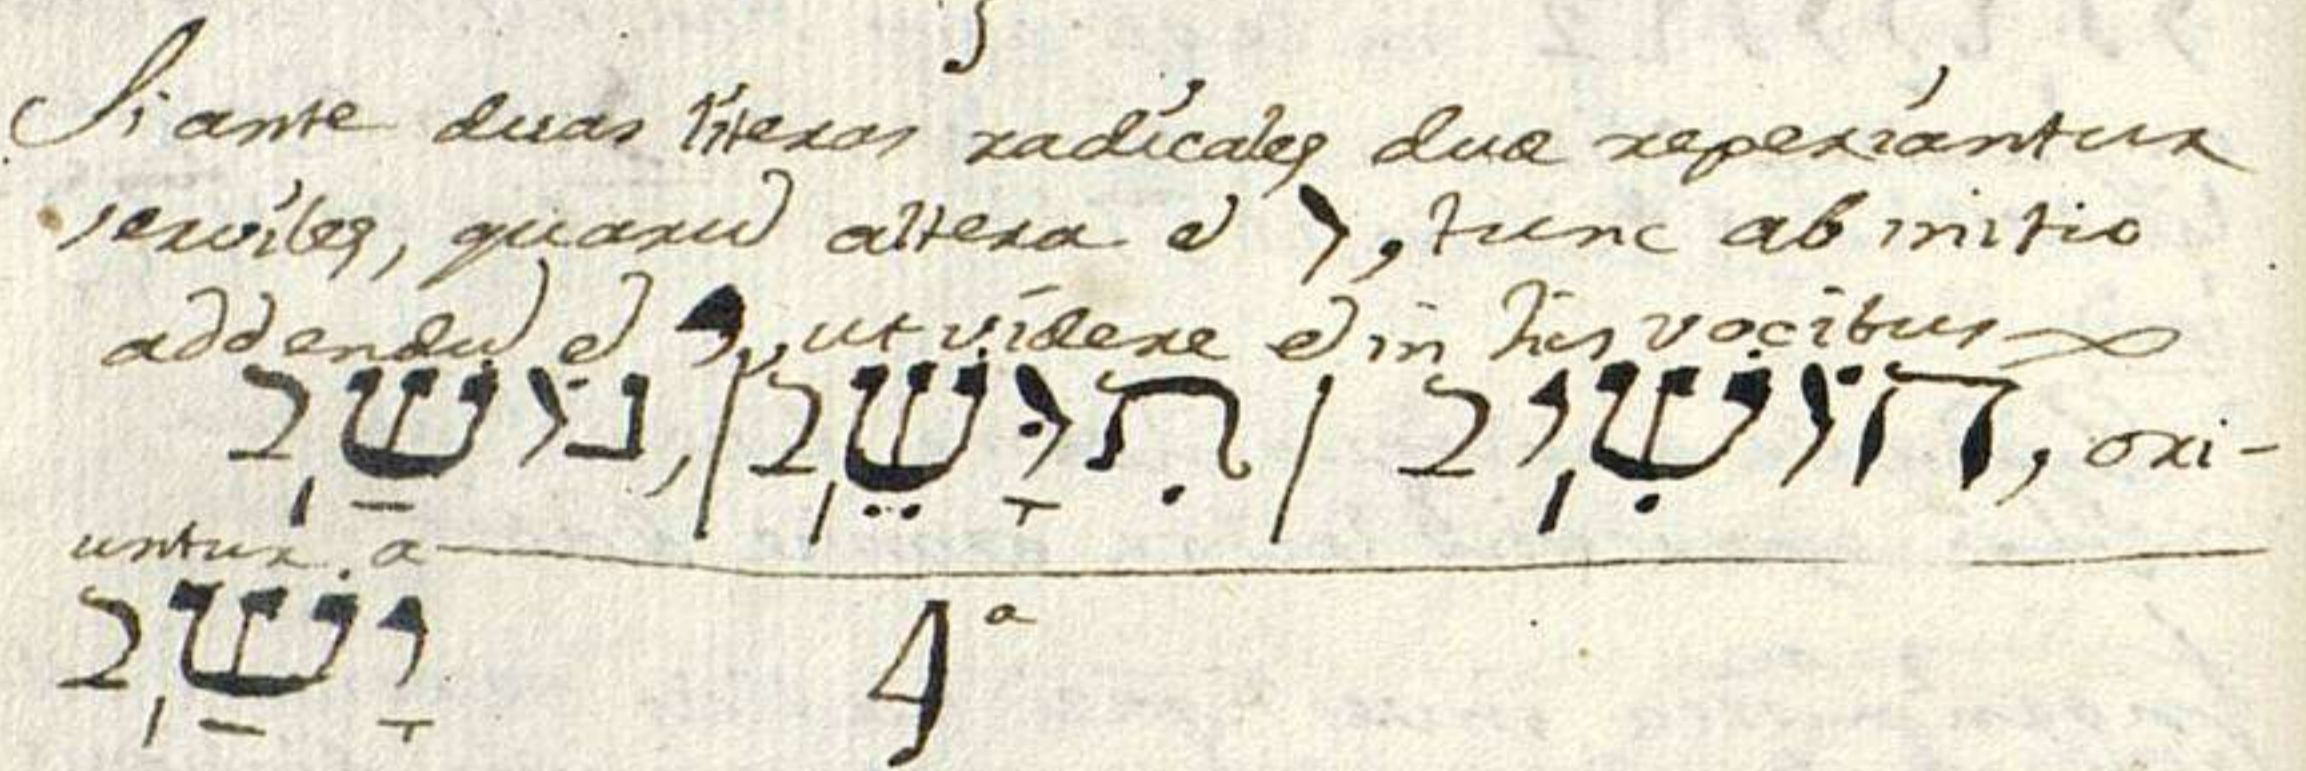 3
Si ante duas literas radicales duæ reperiantur
serviles, quarũ altera ẽ ו, tunc ab initio
addendũ ẽ י, ut videre ẽ in his vocibus
הוֹשִׁיב / תִוָּשֵׁב /, נוֹשַׁב, ori-
untur a
יָשַׁב
4ª